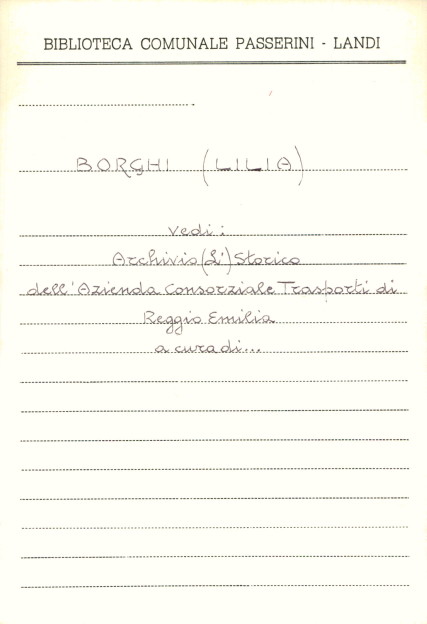 BIBLIOTECA COMUNALE PASSERINI - LANDI
BORGHI (LILIA)
Vedi:
Archivio (L') Storico
dell'Azienda Consorziale Trasporti di
Reggio Emilia
a cura di...